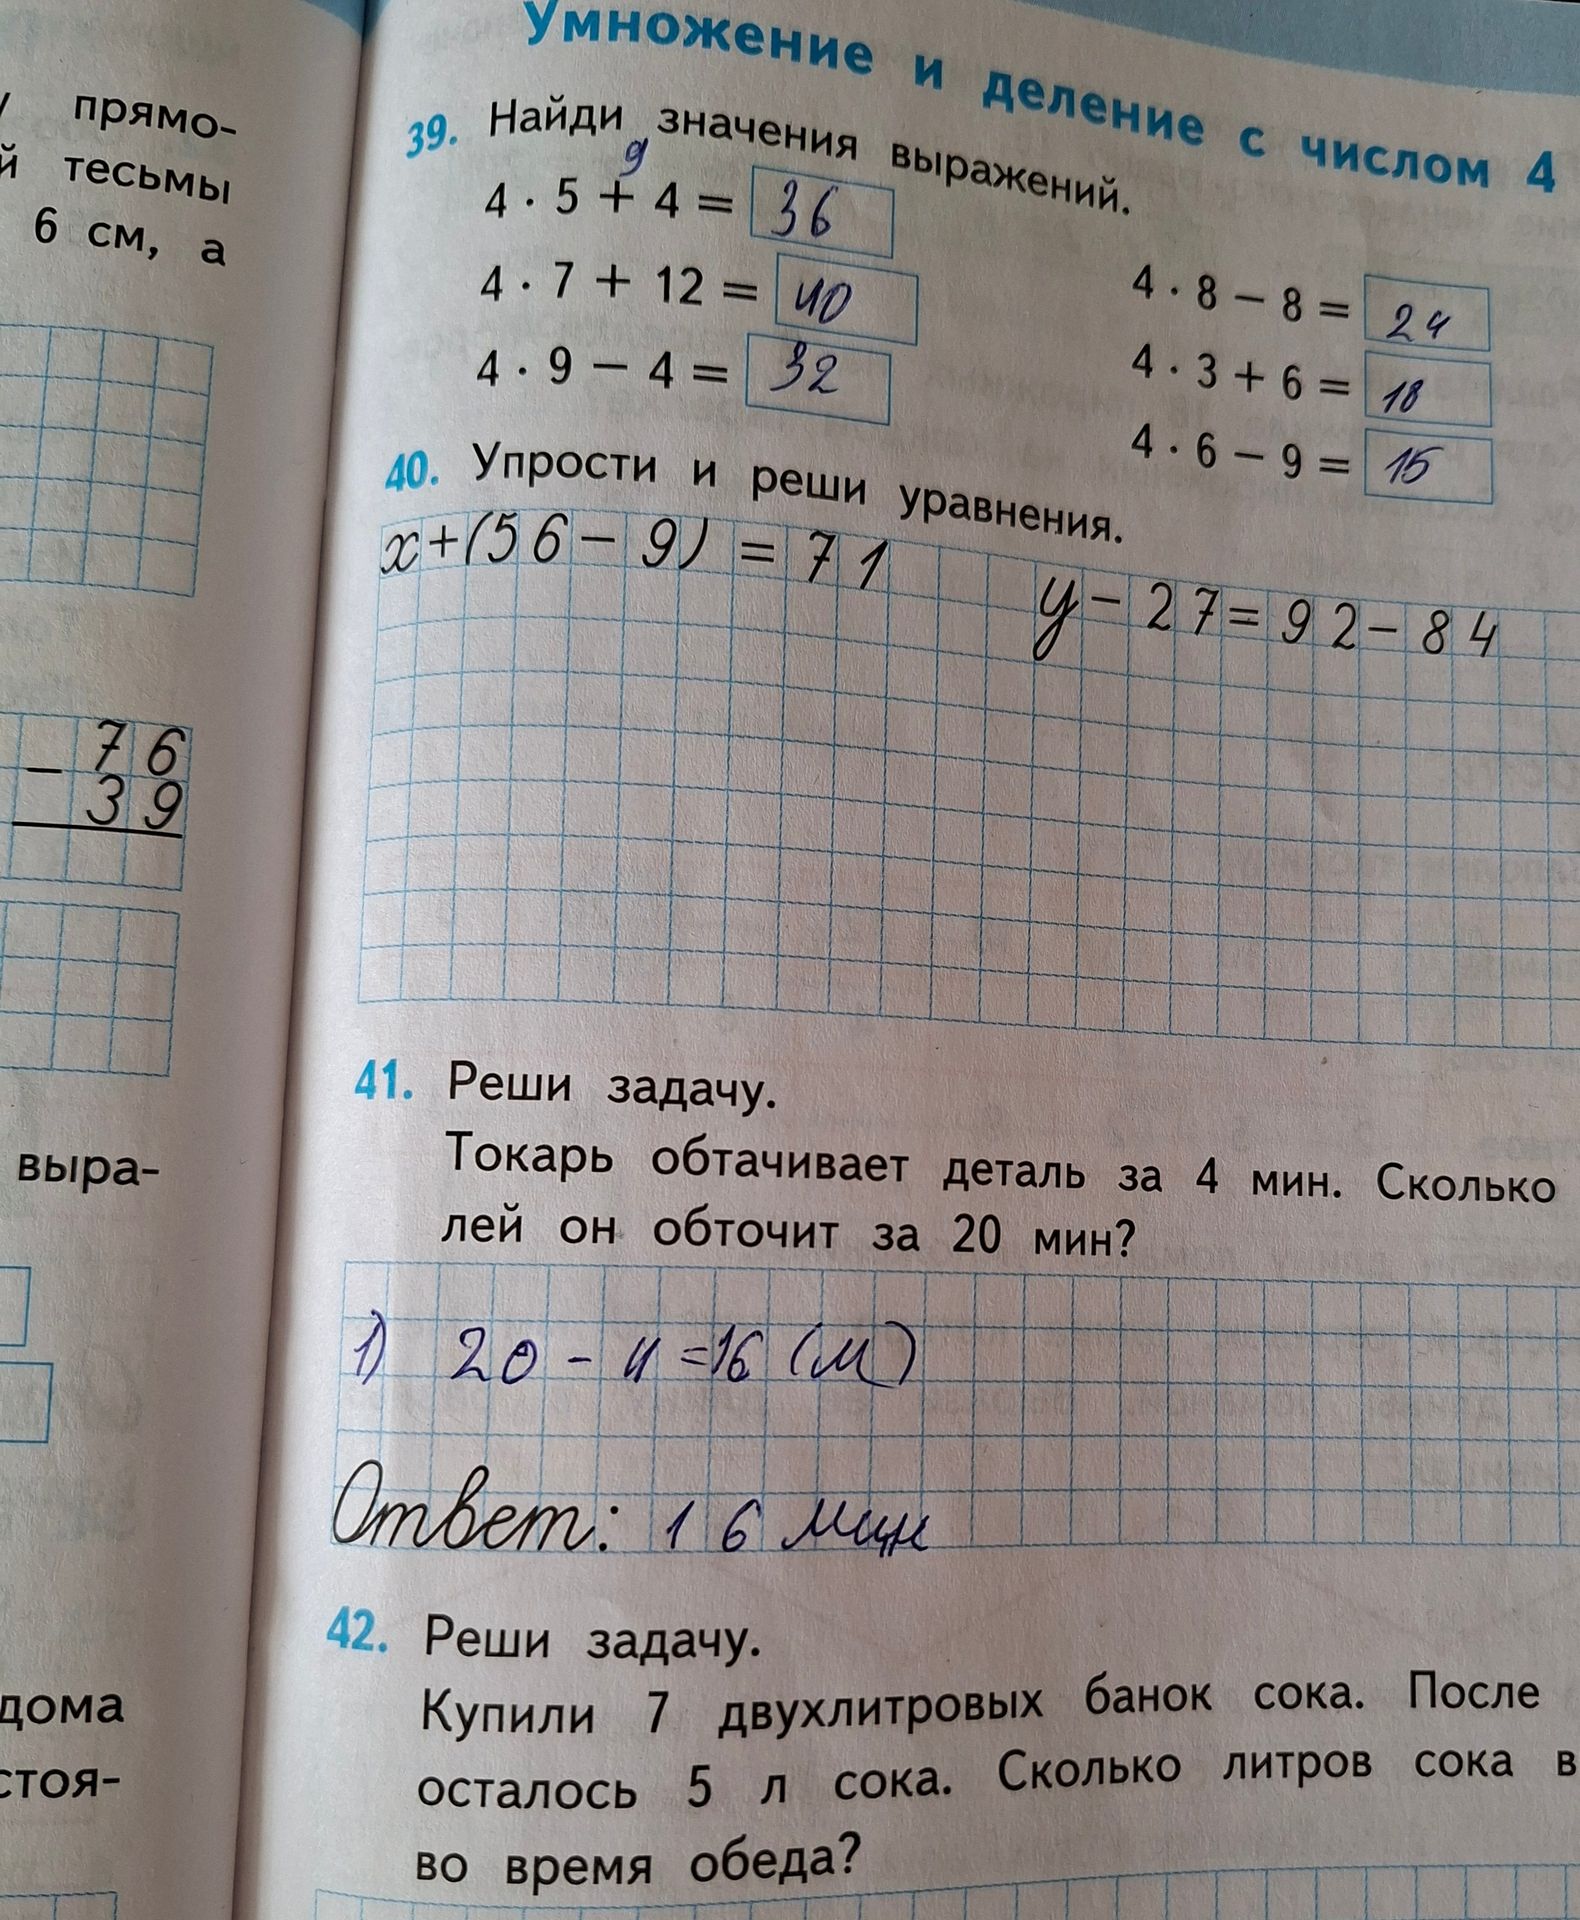 у прямо-
й тесьмы
6 см, а
76
– 39
выра-
дома
стоя-
Умножение и деление с числом 4
39. Найди значения выражений.
9
4 · 5 + 4 = 36
4 · 7 + 12 = 40
4 · 9 – 4 = 32
4 · 8 – 8 = 24
4 · 3 + 6 = 18
4 · 6 – 9 = 15
40. Упрости и реши уравнения.
x+(56–9) = 71
y–27=92–84
41. Реши задачу.
Токарь обтачивает деталь за 4 мин. Сколько
лей он обточит за 20 мин?
1) 20 - 4 =16 (м)
Ответ: 16 мин
42. Реши задачу.
Купили 7 двухлитровых банок сока. После
осталось 5 л сока. Сколько литров сока в
во время обеда?